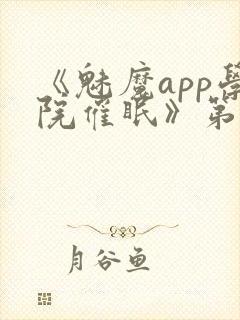 《魅魔app学
院催眠》第
月谷鱼